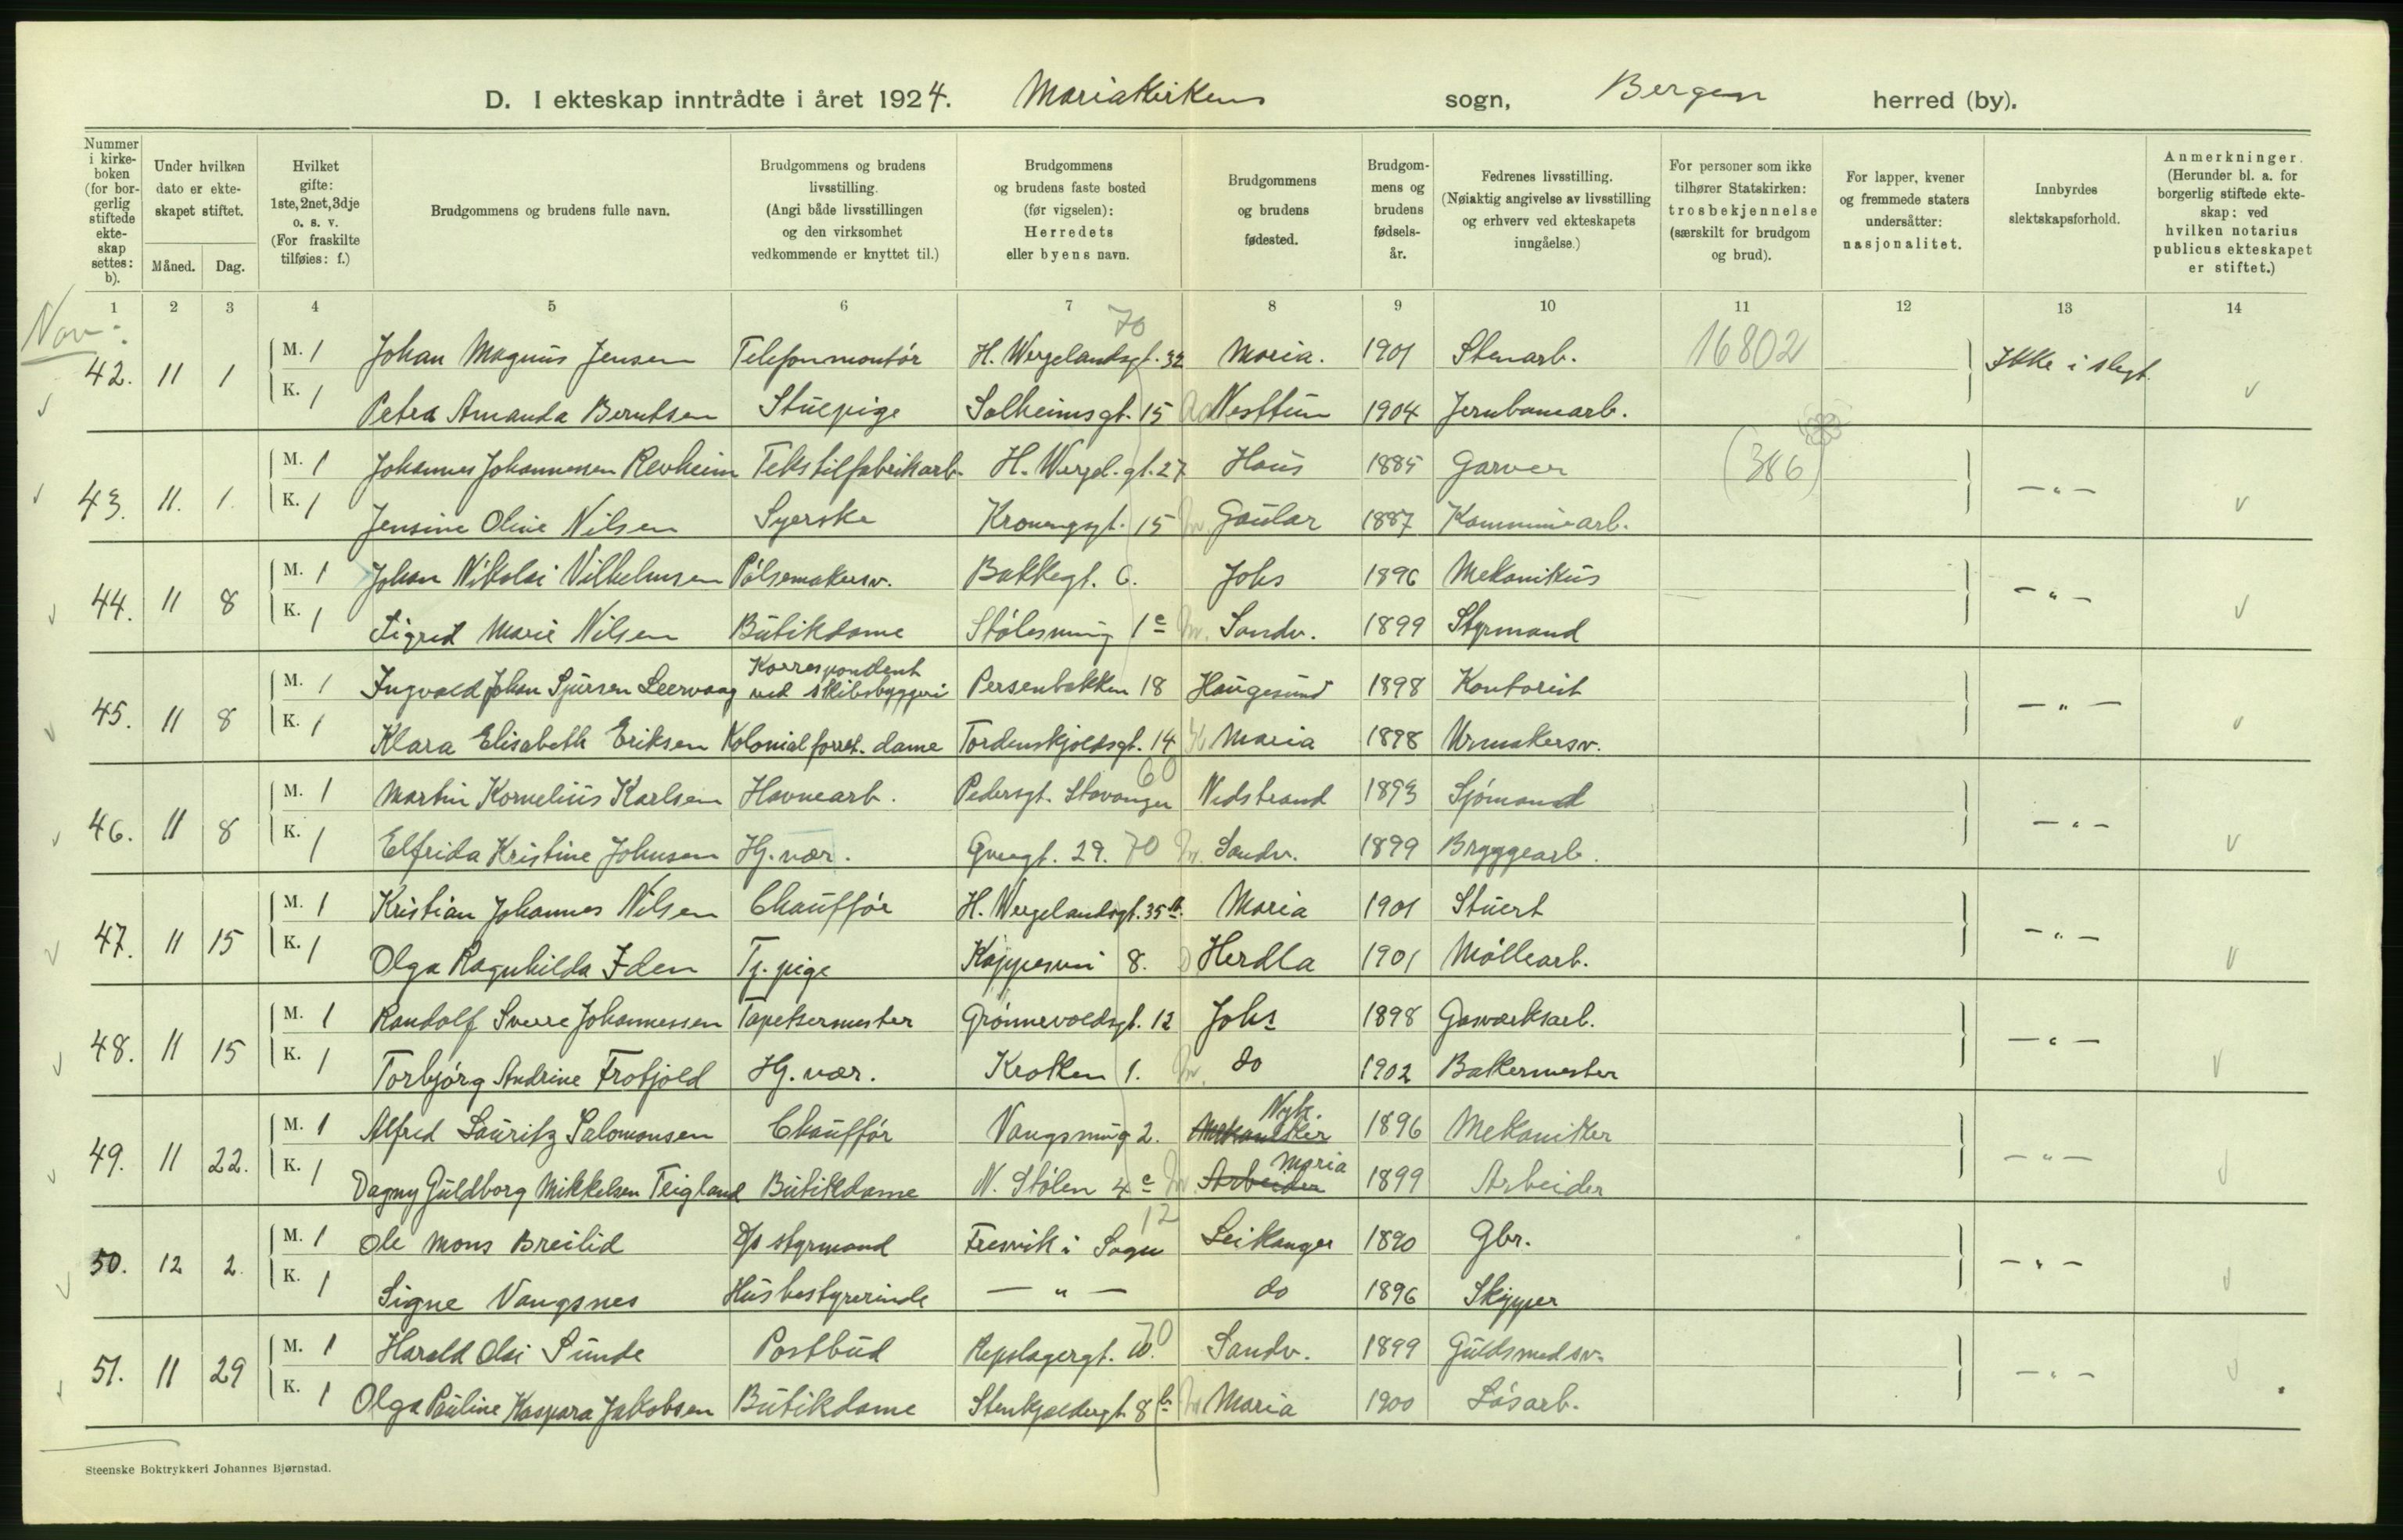 D. I ekteskap inntrådte i året 1924. Mariakirkens sogn, Bergen herred (by).
Nummer i kirke-boken (for bor-gerlig stiftede ekte-skap settes: b).
Under hvilken dato er ekte-skapet stiftet.
Måned. Dag.
Hvilket gifte: 1ste, 2net, 3dje o. s. v. (For fraskilte tilføies: f.)
Brudgommens og brudens fulle navn.
Brudgommens og brudens livsstilling. (Angi både livsstillingen og den virksomhet vedkommende er knyttet til.)
Brudgommens og brudens faste bosted (før vigselen): Herredets eller byens navn.
Brudgommens og brudens fødested.
Brudgom-mens og brudens fødsels-år.
Fedrenes livsstilling. (Nøiaktig angivelse av livsstilling og erhverv ved ekteskapets inngåelse.)
For personer som ikke tilhører Statskirken: trosbekjennelse (særskilt for brudgom og brud).
For lapper, kvener og fremmede staters undersåtter: nasjonalitet.
Innbyrdes slektskapsforhold.
Anmerkninger. (Herunder bl. a. for borgerlig stiftede ekte-skap: ved hvilken notarius publicus ekteskapet er stiftet.)
1 2 3 4 5 6 7 8 9 10 11 12 13 14
Nov. 70
42. 11 1 M. 1 Johan Magnus Jensen Telefonmontör H. Wergelandsgt. 32 Maria. 1901 Stenarb. 16802 Ikke i slegt.
K. 1 Petra Amanda Berntsen Stuepige Solheimsgt. 15 Nesttun 1904 Jernbanearb.
43. 11. 1. M. 1 Johannes Johannessen Revheim Tekstilfabrikarb. H. Wergel. gt. 27 Haus 1885 Garver (386) — " —
K. 1 Jensine Oline Nilsen Syerske Kronengsgt. 15 Gaular 1887 Kommunearb.
44. 11 8 M. 1 Johan Nikolai Vilhelmsen Pölsemakersv. Bakkegt. 6. Johs 1896 Mekanikus — " —
K. 1 Sigrid Marie Nilsen Butikdame Stölesmug 1c Sandv. 1899 Styrmand
45. 11 8 M. 1 Ingvald Johan Sjursen Leervaag Korrespondent ved skibsbyggeri Persenbakken 18 Haugesund 1898 Kontorist — " —
K. 1 Klara Elisabeth Eriksen Kolonialforret. dame Tordenskjoldsgt. 14 Maria 1898 Urmakersv.
60
46. 11 8 M. 1 Martin Kornelius Karlsen Havnearb. Pedersgt. Stavanger Nedstrand 1893 Sjömand — " —
K. 1 Elfrida Kristine Johnsen Hj. vær. 29. 70 Sandv. 1899 Bryggearb.
47. 11 15 M. 1 Kristian Johannes Nilsen Chaufför H. Wergelandsgt. 35b. Maria 1901 Stuert — " —
K. 1 Olga Ragnhilda Iden Tj. pige 8. Herdla 1901 Möllearb.
48. 11 15 M. 1 Randolf Sverre Johannessen Tapetsermester Grönnevoldsgt. 12 Johs 1898 Gasværksarb. — " —
K. 1 Torbjörg Andrine Frotjold Hj. vær. Kroken 1. do 1902 Bakermester
49. 11 22. M. 1 Alfred Lauritz Salomonsen Chaufför Vangsmug 2. Mekaniker Nyk. 1896 Mekaniker — " —
K. 1 Dagny Guldborg Mikkelsen Teigland Butikdame N. Stölen 4c Arbeider Maria 1899 Arbeider
12
50. 12 2. M. 1 Ole Mons Breilid D/s styrmand Fresvik i Sogn Leikanger 1890 Gbr. — " —
K. 1 Signe Vangsnes Husbestyrerinde — " — do 1896 Skipper
70
51. 11 29 M. 1 Harald Olai Sunde Postbud Repslagergt. 10. Sandv. 1899 Guldsmedsv. — " —
K. 1 Olga Pauline Kaspara Jakobsen Butikdame Stenkjeldergt. 8b Maria 1900 Lösarb.
Steenske Boktrykkeri Johannes Bjørnstad.